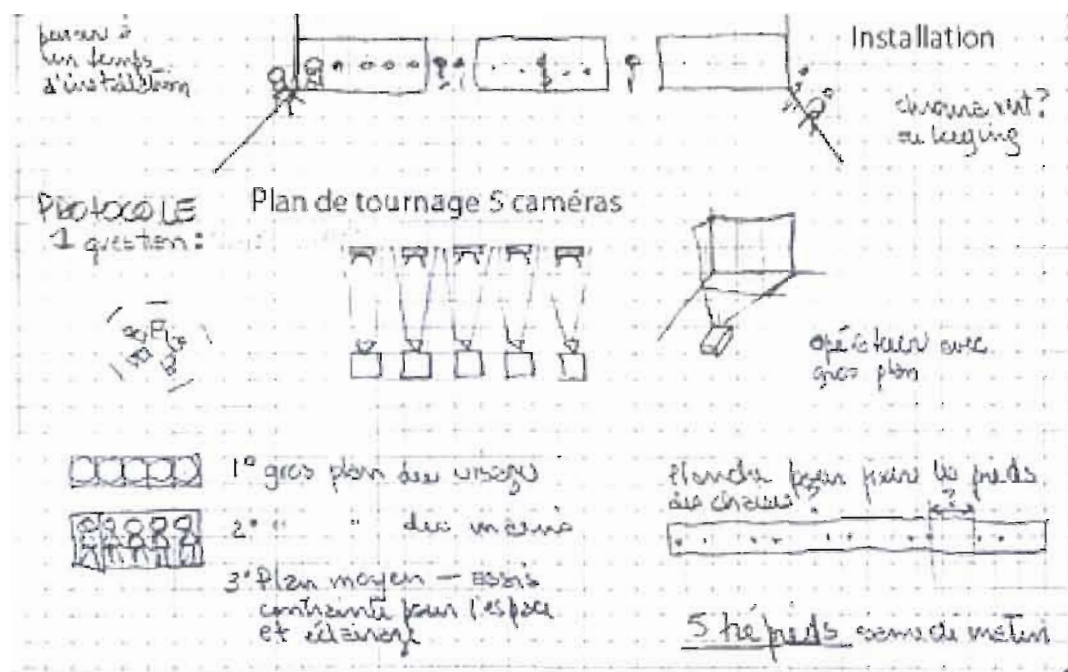 penser à
un temps
d'installation
Installation
chroma vert?
ou keying
PROTOCOLE
1 question:
Plan de tournage 5 caméras
opérateur avec
gros plan
1° gros plan des visages
2° " " des mains
3° Plan moyen — assis
contrainte pour l'espace
et éclairage
Planche pour fixer les pieds
des chaises?
?
5 trépieds samedi matin